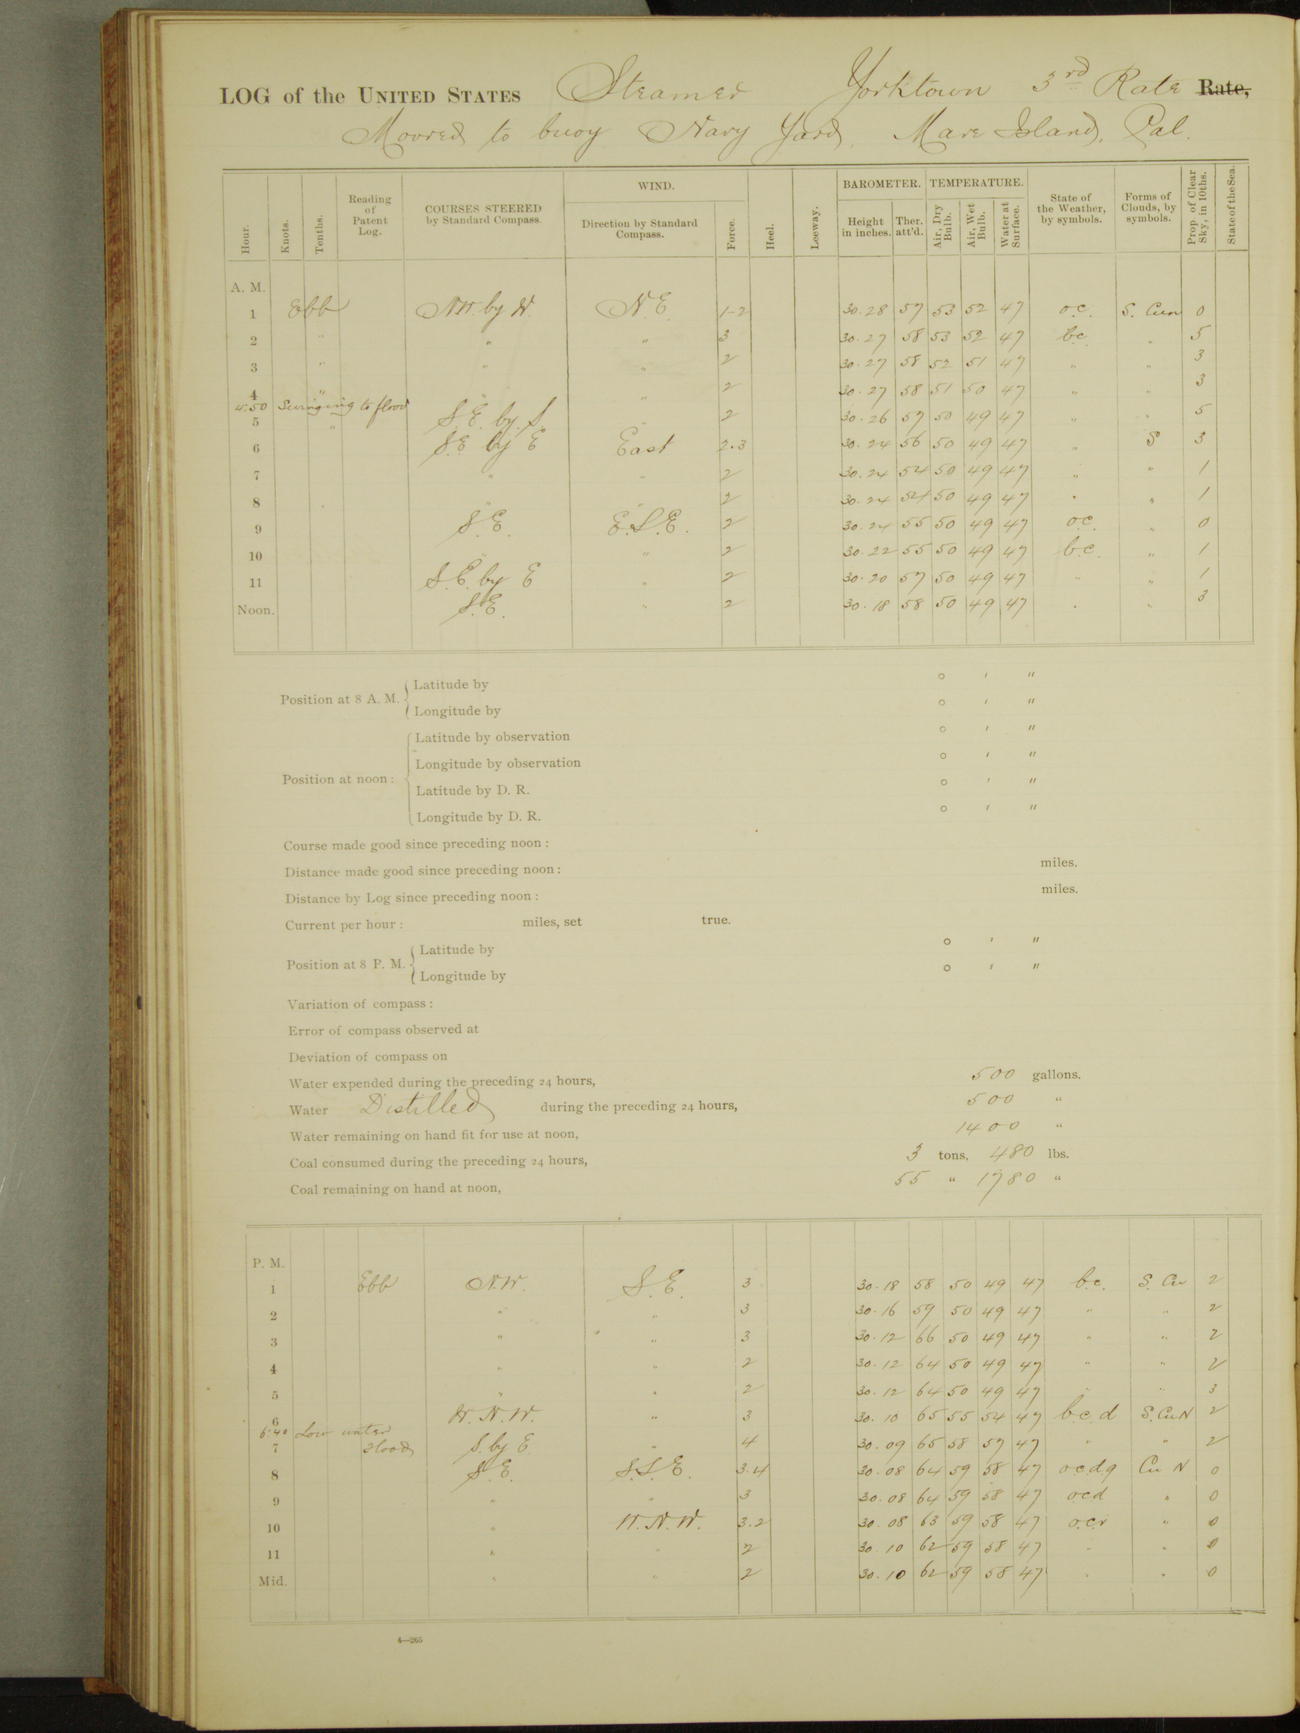 LOG of the UNITED STATES Steamer Yorktown 3rd Rate Rate,
Moored to buoy Navy Yard, Mare Island, Cal.
Hour. Knots. Tenths. Reading of Patent Log. COURSES STEERED by Standard Compass. WIND. Direction by Standard Compass. Force. Heel. Leeway. BAROMETER. Height in inches. Ther. att'd. TEMPERATURE. Air, Dry Bulb. Air, Wet Bulb. Water at Surface. State of the Weather, by symbols. Forms of Clouds, by symbols. Prop. of Clear Sky, in 10ths. State of the Sea.
A. M.
1 Ebb NW. by W. N.E. 1-2 30.28 57 53 52 47 o.c. S. Cum 0
2 " " " 3 30.27 58 53 52 47 b.c. " 5
3 " " " 2 30.27 58 52 51 47 " " 3
4 " " " 2 30.27 58 51 50 47 " " 3
4:50 Swinging to flood
5 " S.E. by S. " 2 30.26 57 50 49 47 " " 5
6 S.E. by E East 2.3 30.24 56 50 49 47 " S 3
7 " " 2 30.24 54 50 49 47 " " 1
8 " " 2 30.24 54 50 49 47 " " 1
9 S.E. E.S.E. 2 30.24 55 50 49 47 o.c. " 0
10 " " 2 30.22 55 50 49 47 b.c. " 1
11 S.E. by E " 2 30.20 57 50 49 47 " " 1
Noon. S.E. " 2 30.18 58 50 49 47 " " 3
Position at 8 A. M. Latitude by ° ′ ″
Longitude by ° ′ ″
Position at noon: Latitude by observation ° ′ ″
Longitude by observation ° ′ ″
Latitude by D. R. ° ′ ″
Longitude by D. R. ° ′ ″
Course made good since preceding noon:
Distance made good since preceding noon: miles.
Distance by Log since preceding noon: miles.
Current per hour: miles, set true.
Position at 8 P. M. Latitude by ° ′ ″
Longitude by ° ′ ″
Variation of compass:
Error of compass observed at
Deviation of compass on
Water expended during the preceding 24 hours, 500 gallons.
Water Distilled during the preceding 24 hours, 500 "
Water remaining on hand fit for use at noon, 1400 "
Coal consumed during the preceding 24 hours, 3 tons, 480 lbs.
Coal remaining on hand at noon, 55 " 1780 "
P. M.
1 Ebb N.W. S.E. 3 30.18 58 50 49 47 b.c. S. Cu 2
2 " " 3 30.16 59 50 49 47 " " 2
3 " " 3 30.12 66 50 49 47 " " 2
4 " " 2 30.12 64 50 49 47 " " 2
5 " " 2 30.12 64 50 49 47 " " 3
6 W.N.W. " 3 30.10 65 55 54 47 b.c.d S.CuN 2
6:40 Low water
7 Flood S. by E. " 4 30.09 65 58 57 47 " " 2
8 S.E. S.S.E. 3.4 30.08 64 59 58 47 o.c.d.q Cu N 0
9 " " 3 30.08 64 59 58 47 o.c.d " 0
10 " W.N.W. 3.2 30.08 63 59 58 47 o.c.r " 0
11 " " 2 30.10 62 59 58 47 " " 0
Mid. " " 2 30.10 62 59 58 47 " " 0
4—265